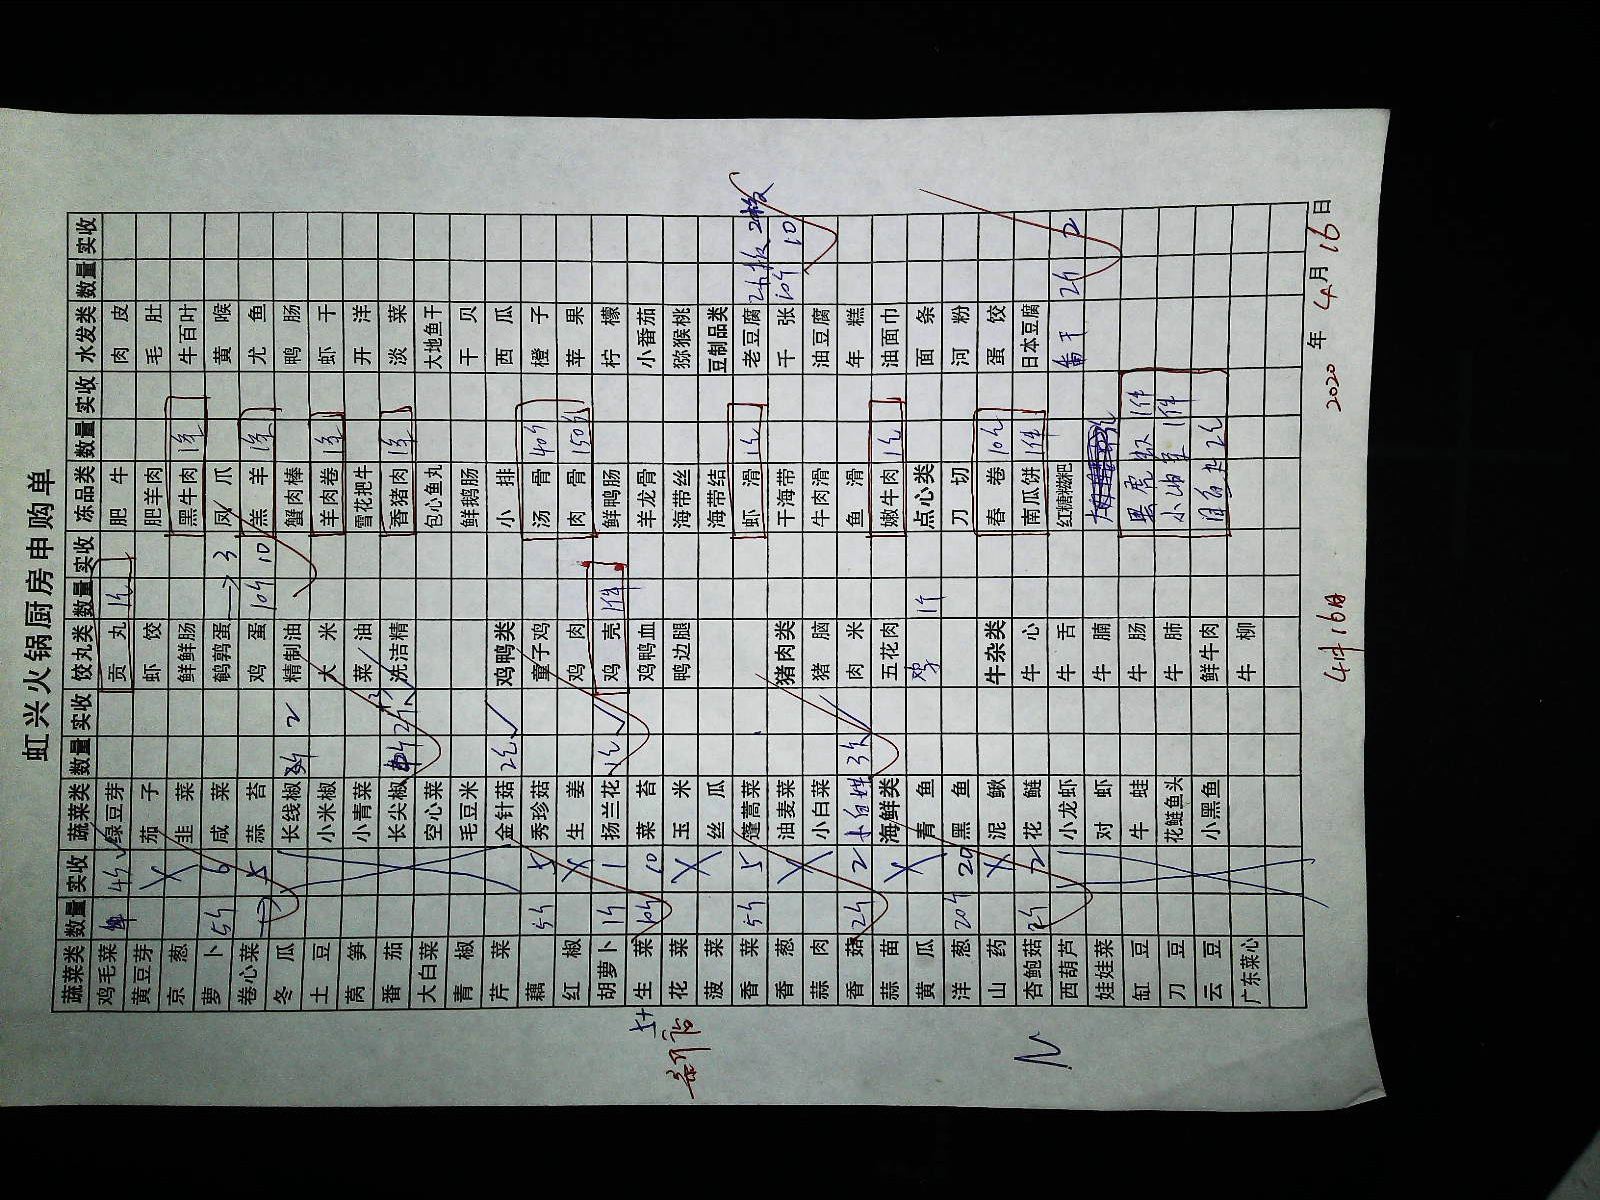 虹兴火锅厨房申购单
蔬菜类 数量 实收 蔬菜类 数量 实收 饺丸类 数量 实收 冻品类 数量 实收 水发类 数量 实收
鸡毛菜 4斤 绿豆芽 贡丸 1包 肥牛 肉皮
黄豆芽 茄子 虾饺 肥羊肉 毛肚
京葱 韭菜 鲜鲜肠 黑牛肉 1条 牛百叶
萝卜 5斤 6 咸菜 鹌鹑蛋 3 凤爪 黄喉
卷心菜 5 蒜苔 鸡蛋 10斤 10 羔羊 1条 尤鱼
冬瓜 长线椒 2 精制油 蟹肉棒 鸭肠
土豆 小米椒 大米 羊肉卷 1条 虾干
莴笋 小青菜 菜油 雪花把牛 开洋
番茄 长尖椒 2斤 洗洁精 香猪肉 1条 淡菜
大白菜 空心菜 包心鱼丸 大地鱼干
青椒 毛豆米 鲜鹅肠 干贝
芹菜 金针菇 2包 鸡鸭类 小排 西瓜
藕 5斤 5 秀珍菇 童子鸡 汤骨 40斤 橙子
红椒 生姜 鸡肉 肉骨 150斤 苹果
胡萝卜 1斤 1 扬兰花 1包 鸡壳 1件 鲜鸭肠 柠檬
5+ 生菜 10斤 10 菜苔 鸡鸭血 羊龙骨 小番茄
花菜 玉米 鸭边腿 海带丝 猕猴桃
菠菜 丝瓜 海带结 豆制品类
香菜 5斤 5 篷蒿菜 虾滑 1包 老豆腐 2板 2板
香葱 油麦菜 猪肉类 干海带 千张 10斤 10
蒜肉 小白菜 猪脑 牛肉滑 油豆腐
香菇 2斤 2 肉米 鱼滑 年糕
蒜苗 海鲜类 五花肉 嫩牛肉 1包 油面巾
黄瓜 青鱼 1斤 点心类 面条
洋葱 20斤 20 黑鱼 刀切 河粉
山药 泥鳅 牛杂类 春卷 10包 蛋饺
杏鲍菇 2斤 2 花鲢 牛心 南瓜饼 1件 日本豆腐
西葫芦 小龙虾 牛舌 红糖糍粑 香干 2斤 2
娃娃菜 对虾 牛腩
缸豆 牛蛙 牛肠 黑虎虾 1件
刀豆 花鲢鱼头 牛肺 小油豆 1件
云豆 小黑鱼 鲜牛肉 2包
广东菜心 牛柳
4月16日 2020 年 4月 16日